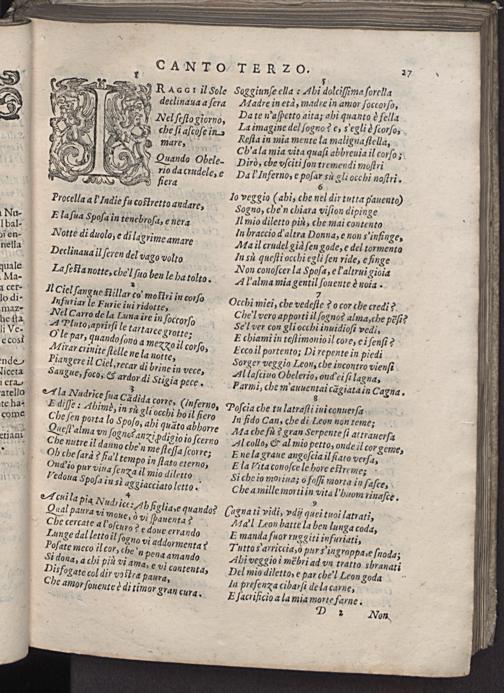 CANTO TERZO. 27
I
RAGGI il Sole
declinaua a sera
Nel sesto giorno,
che si ascose in
mare,
Quando Obele-
rio da crudele, e
fiera
Procella a l'Indie fu costretto andare,
E la sua Sposa in tenebrosa, e nera
Notte di duolo, e di lagrime amare
Declinaua il seren del vago volto
La sesta notte, che'l suo ben le ha tolto.
2
Il Ciel sangue stillar co' mostri in corso
Infuriar le Furie iui ridotte,
Nel Carro de la Luna ire in soccorso
A Pluto, aprirsi le tartaree grotte;
O' le par, quando sono a mezzo il corso,
Mirar crinite stelle ne la notte,
Piangere il Ciel, recar di brine in vece,
Sangue, foco, & ardor di Stigia pece.
3
A la Nudrice sua Cãdida corre, (inferno,
E disse: Ahimè, in sù gli occhi hò il fiero
Che sen porta lo Sposo, ahi quãto abhorre
Quest'alma vn sogno? anzi pdigio io scerno
Che nutre il danno che'n me stessa scorre;
Oh che sarà? fia'l tempo in stato eterno,
Ond'io pur viua senza il mio diletto
Vedoua Sposa in sì agghiacciato letto.
4
A cui la pia Nudrice: Ah figlia, e quando?
Qual paura vi moue, ò vi spauenta?
Che cercate a l'oscuro? e doue errando
Lunge dal letto il sogno vi addormenta?
Posate meco il cor, che'n pena amando
Si dona, a chi più vi ama, e vi contenta,
Disfogate col dir vostra paura,
Che amor souente è di timor gran cura.
5
Soggiunse ella: Ahi dolcissima sorella
Madre in età, madre in amor soccorso,
Da te n'aspetto aita; ahi quanto è fella
La imagine del sogno? e, s'egli è scorso,
Resta in mia mente la maligna stella,
Ch'a la mia vita quasi abbreuia il corso;
Dirò, che vscitison tremendi mostri
Da l'Inferno, e posar sù gli occhi nostri.
6
Io veggio (ahi, che nel dir tutta pauento)
Sogno, che'n chiara vision dipinge
Il mio diletto più, che mai contento
In braccio d'altra Donna, e non s'infinge,
Ma il crudel già sen gode, e del tormento
In sù questi occhi egli sen ride, e finge
Non conoscer la Sposa, e l'altrui gioia
A l'alma mia gentil souente è noia.
7
Occhi miei, che vedeste? o cor che credi?
Che'l vero apporti il sogno? alma, che pẽsi?
Se'l ver con gli occhi inuidiosi vedi,
E chiami in testimonio il core, e i sensi?
Ecco il portento; Di repente in piedi
Sorger veggio Leon, che incontro viensi
Al lasciuo Obelerio, ond'ei si lagna,
Parmi, che m'auuentai cãgiata in Cagna.
8
Poscia che tu latrasti ini conuersa
In fido Can, che di Leon non teme;
Ma che fù? gran Serpente si attrauersa
Al collo, & al mio petto, onde il cor geme,
E ne la graue angoscia il fiato versa,
E la Vita conosce le hore estreme;
Si che io moriua; o fossi morta in fasce,
Che a mille morti in vita l'huom rinasce.
9
Cagna ti vidi, vdij quei tuoi latrati,
Ma'l Leon batte la ben lunga coda,
E manda fuor ruggiti infuriati,
Tutto s'arriccia, ò pur s'ingroppa, e snoda;
Ahi veggio i mẽbri ad vn tratto sbranati
Del mio diletto, e par che'l Leon goda
In presenza cibarsi de la carne,
E sacrificio a la mia morte farne.
D 2 Non